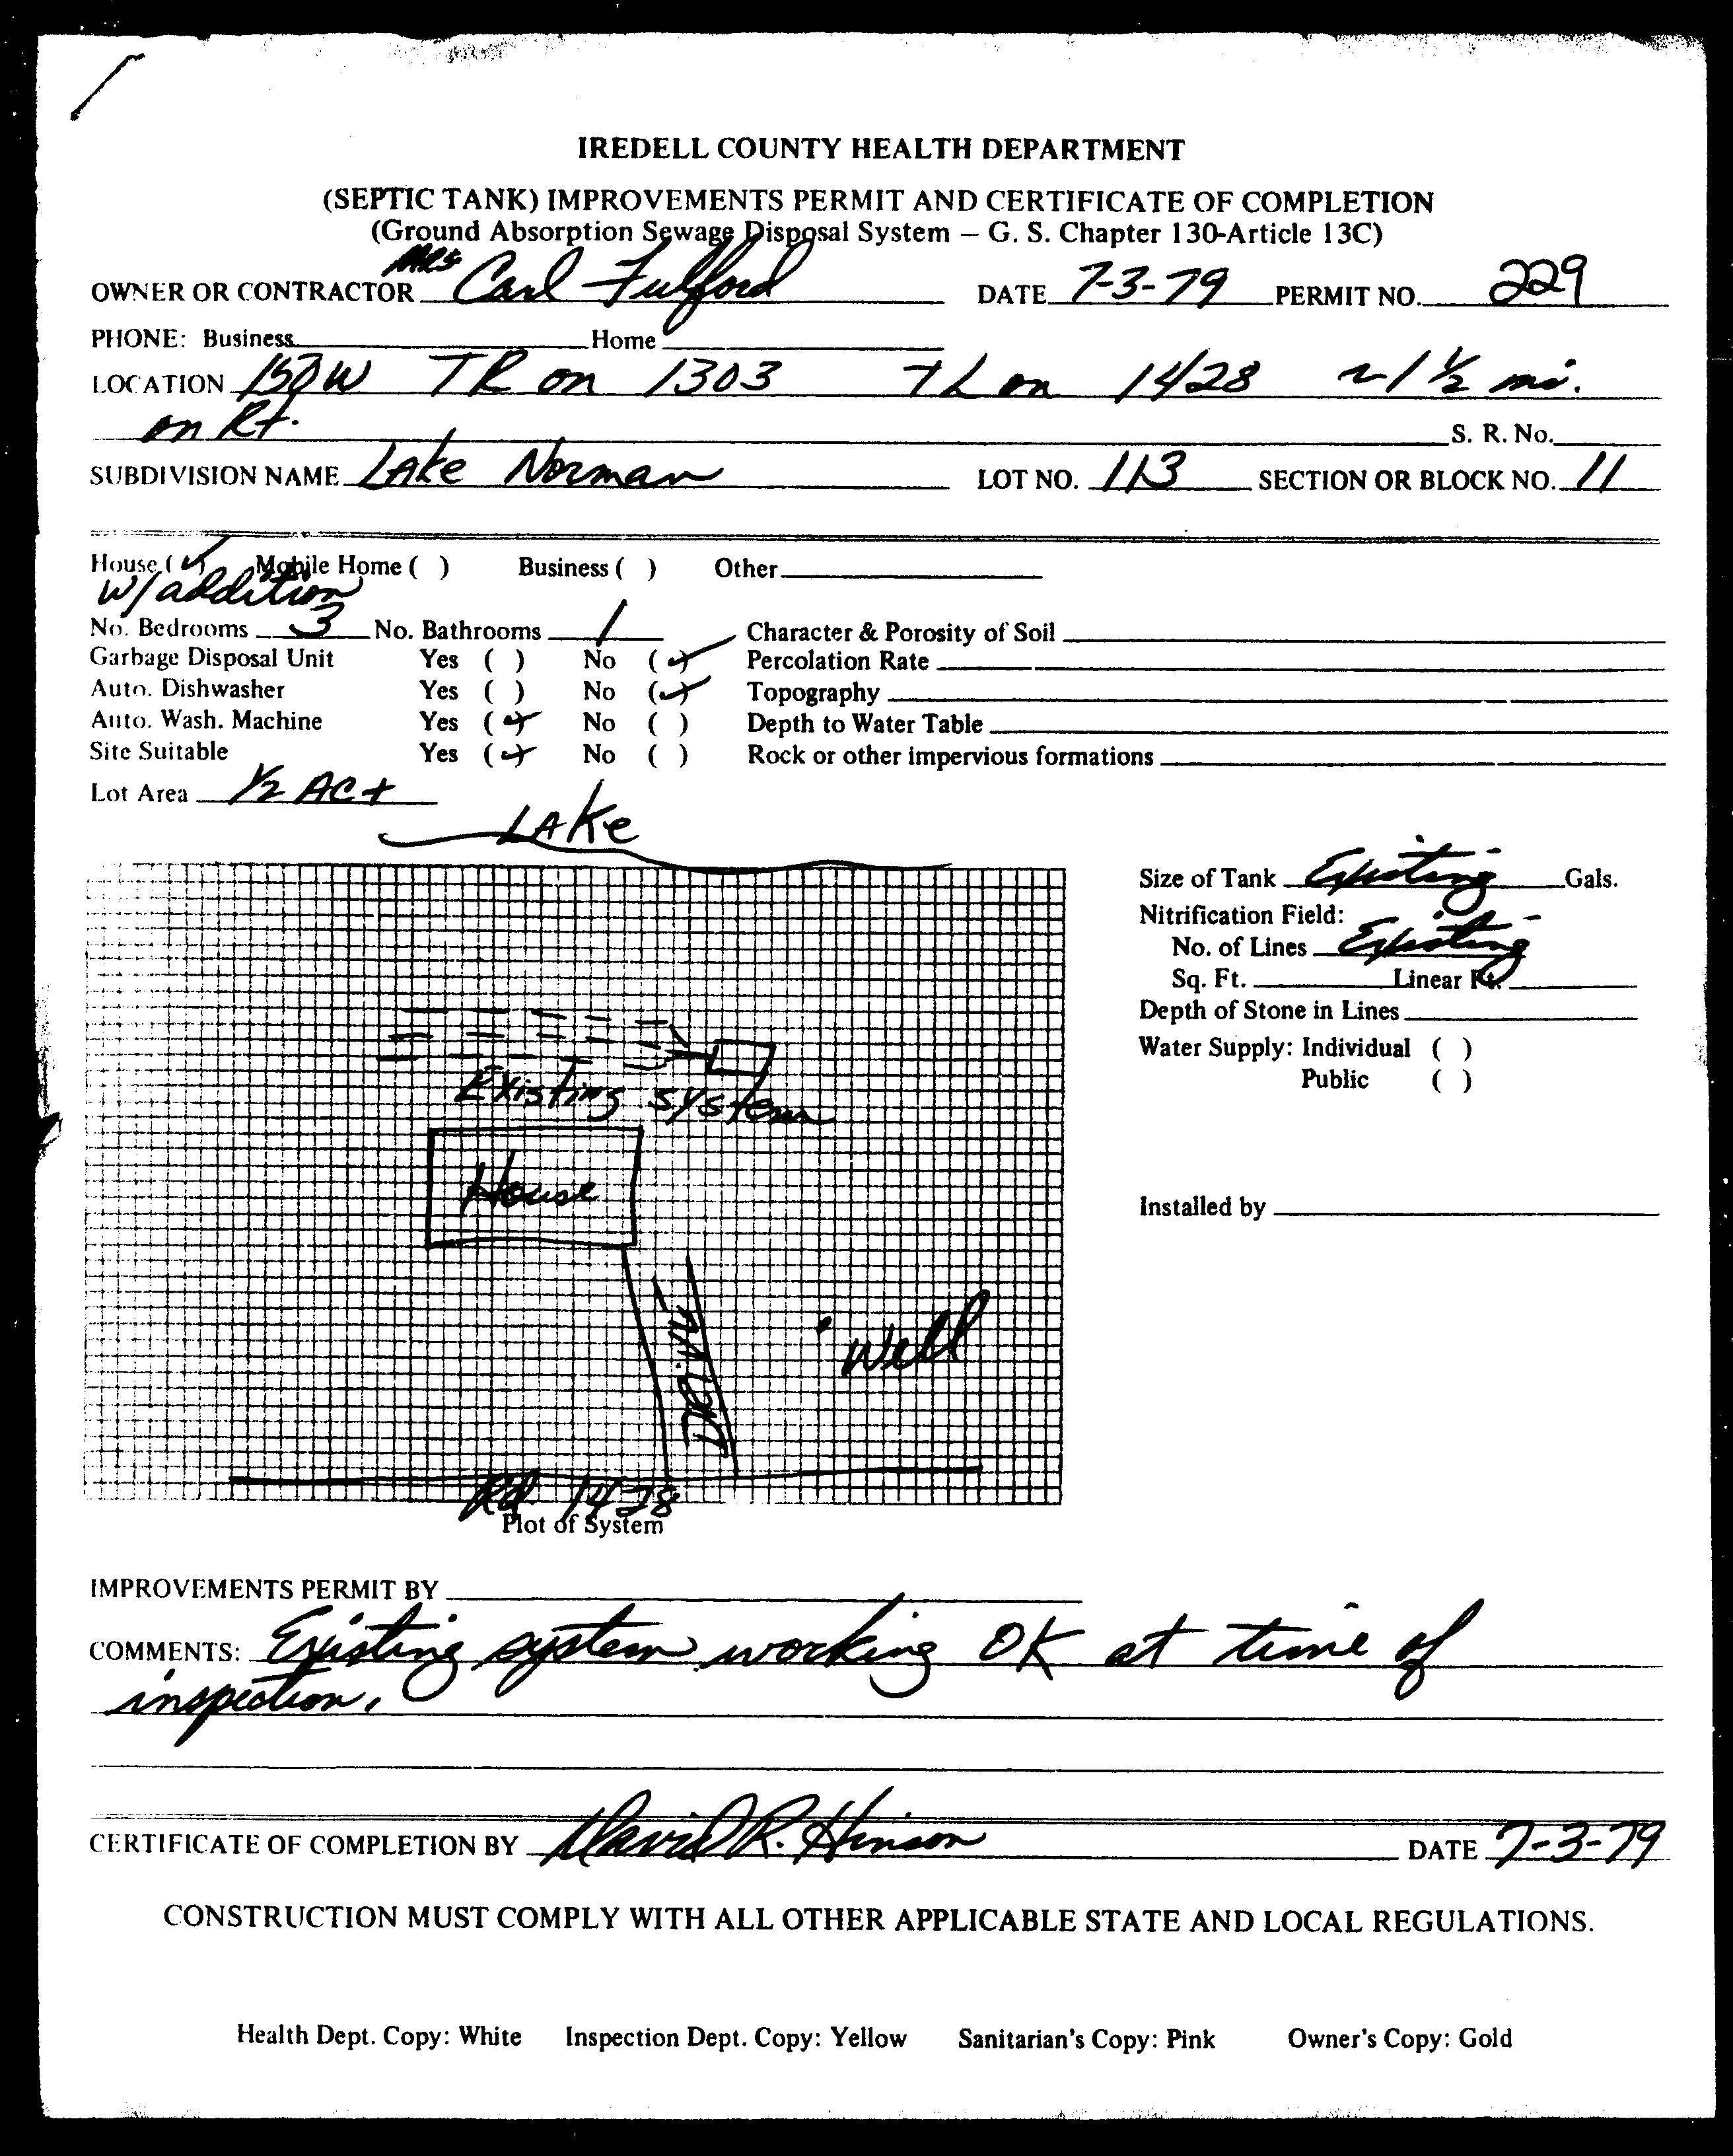 IREDELL COUNTY HEALTH DEPARTMENT
(SEPTIC TANK) IMPROVEMENTS PERMIT AND CERTIFICATE OF COMPLETION
(Ground Absorption Sewage Disposal System — G. S. Chapter 130-Article 13C)
OWNER OR CONTRACTOR Mrs Carl Fulford DATE 7-3-79 PERMIT NO. 229
PHONE: Business Home
LOCATION 150W TR on 1303 TL on 1428 ~1 1/2 mi.
on Rt. S. R. No.
SUBDIVISION NAME Lake Norman LOT NO. 113 SECTION OR BLOCK NO. 11
House (✓) Mobile Home ( ) Business ( ) Other
w/addition
No. Bedrooms 3 No. Bathrooms 1 Character & Porosity of Soil
Garbage Disposal Unit Yes ( ) No (✓) Percolation Rate
Auto. Dishwasher Yes ( ) No (✓) Topography
Auto. Wash. Machine Yes (✓) No ( ) Depth to Water Table
Site Suitable Yes (✓) No ( ) Rock or other impervious formations
Lot Area 1/2 AC+
LAKe
Size of Tank Existing Gals.
Nitrification Field:
No. of Lines Existing
Sq. Ft. Linear Ft.
Depth of Stone in Lines
Water Supply: Individual ( )
Public ( )
Existing system
House
Installed by
Well
Rd 1428
Plot of System
IMPROVEMENTS PERMIT BY
COMMENTS: Existing system working OK at time of
inspection.
CERTIFICATE OF COMPLETION BY David R. Hinson DATE 7-3-79
CONSTRUCTION MUST COMPLY WITH ALL OTHER APPLICABLE STATE AND LOCAL REGULATIONS.
Health Dept. Copy: White Inspection Dept. Copy: Yellow Sanitarian's Copy: Pink Owner's Copy: Gold